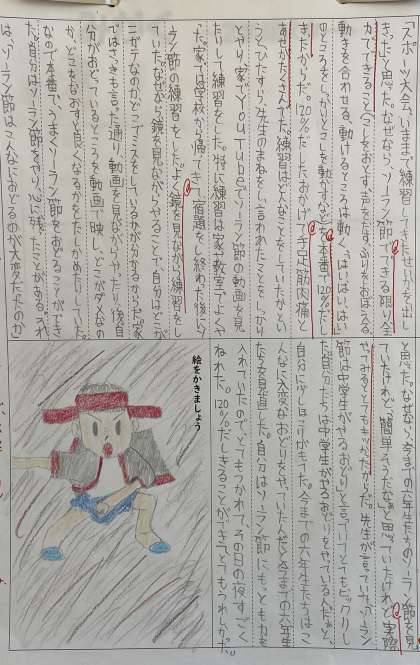 「スポーツ大会、いままで練習してきたせいかを出
きった」と思った。なぜなら、ソーラン節でできる限り全
力でできること(こしをおとす、声をだす、ふりをおぼえる、
動きを合わせる、動けるところは動く、「はい、はい、はい」
のところをしっかりと、しを動かすなど)を本番で120%だし
きったからだ。120%だしたおかげで手足筋肉痛と
あせがたくさんでた。練習はどんなことをしていたかとい
うと、ひたすら、先生のまねをし、言われたことをしっかり
とやり、家でYouTubeでソーラン節の動画を見
たりして練習をした。特に練習は家や教室でよくや
った。家では学校から帰ってきて、宿題をし、終わった後、ソー
ラン節の練習をした。よく鏡を見ながら練習をし
ていた。なぜかというと鏡を見ながらやることで、自分はどこが
ニガテなのか、どこでミスをしているかが分かるからだ。家
ではさっきも言った通り、動画を見ながらやったり、後、自
分がおどっているところを動画で映し、どこがダメなの
か、どこをなおすと良くなるかをたしかめたりしていた。
なので本番で、うまくソーラン節をおどることができ
た。自分はソーラン節をやり、心に残ったことがある。それ
は、「ソーラン節はこんなにおどるのが大変だったのか」
と思った。なぜなら、今までの六年生たちのソーラン節を見
ていたけれど、「簡単そうだな」と思っていたけれど、実際
やってみるととてもきつかったからだ。先生が言っていた、「ソーラン
節は中学生がやるおどり」と言っていてとてもビックリし
た。「自分たちは中学生がやるおどりをやっているんだ」と、
自分に少しほこりがもてた。今までの六年生たちはこ
んなに大変なおどりをやっていたんだと今までの六年生
たちを見直した。自分はソーラン節にもとも力を
入れていたので、とてもつかれて、その日の夜すごく
ねむれた。120%だしきることができて、とてもうれしかった。
絵をかきましょう